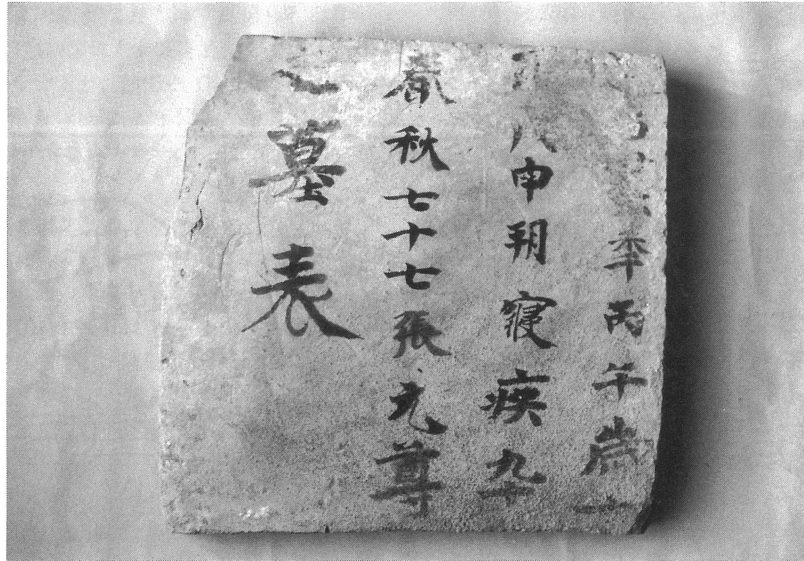 秊丙午歲
申朔寢疾卆
春秋七十七張元尊
之墓表